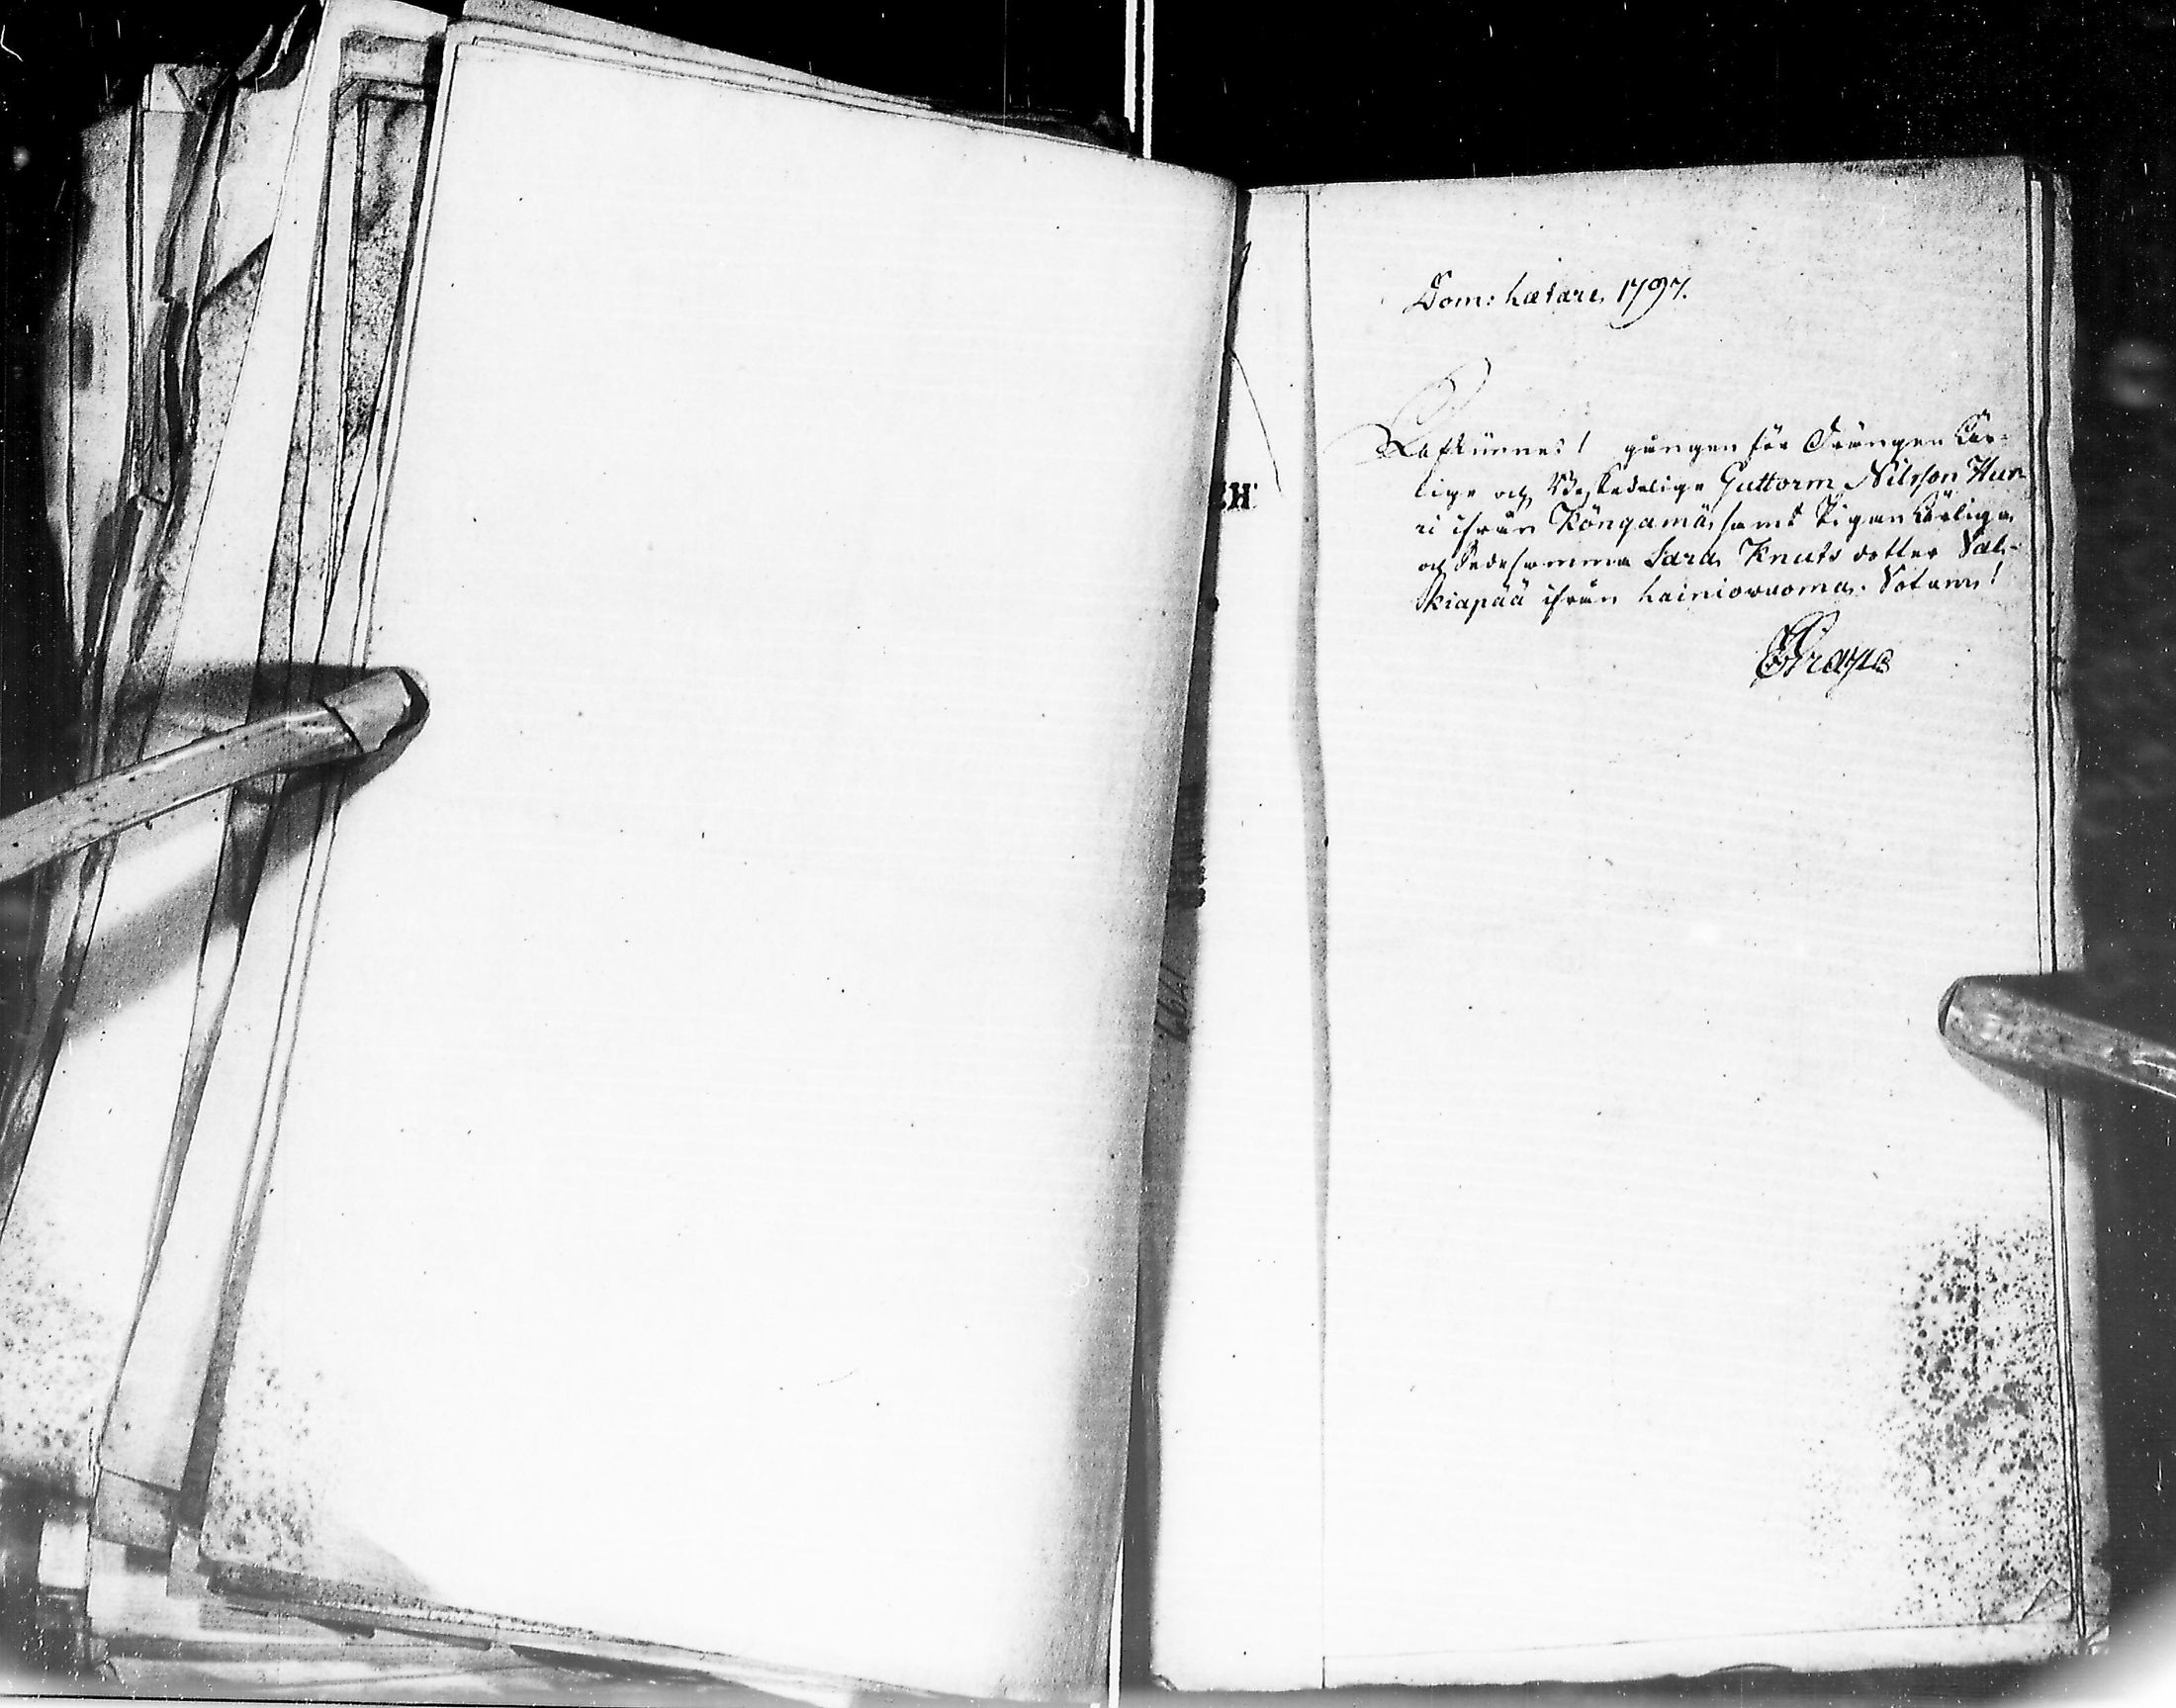 Dom: Lætare 1797.
gången för Drängen Ä̈r-
lige och Beskedelige Guttorm Nilsson Hur-
ri ifrån Köngämä, samt Pigan Ärliga
och Sedesamma Sara Knuts dotter Val-
kiapää ifrån Lainiowuoma.